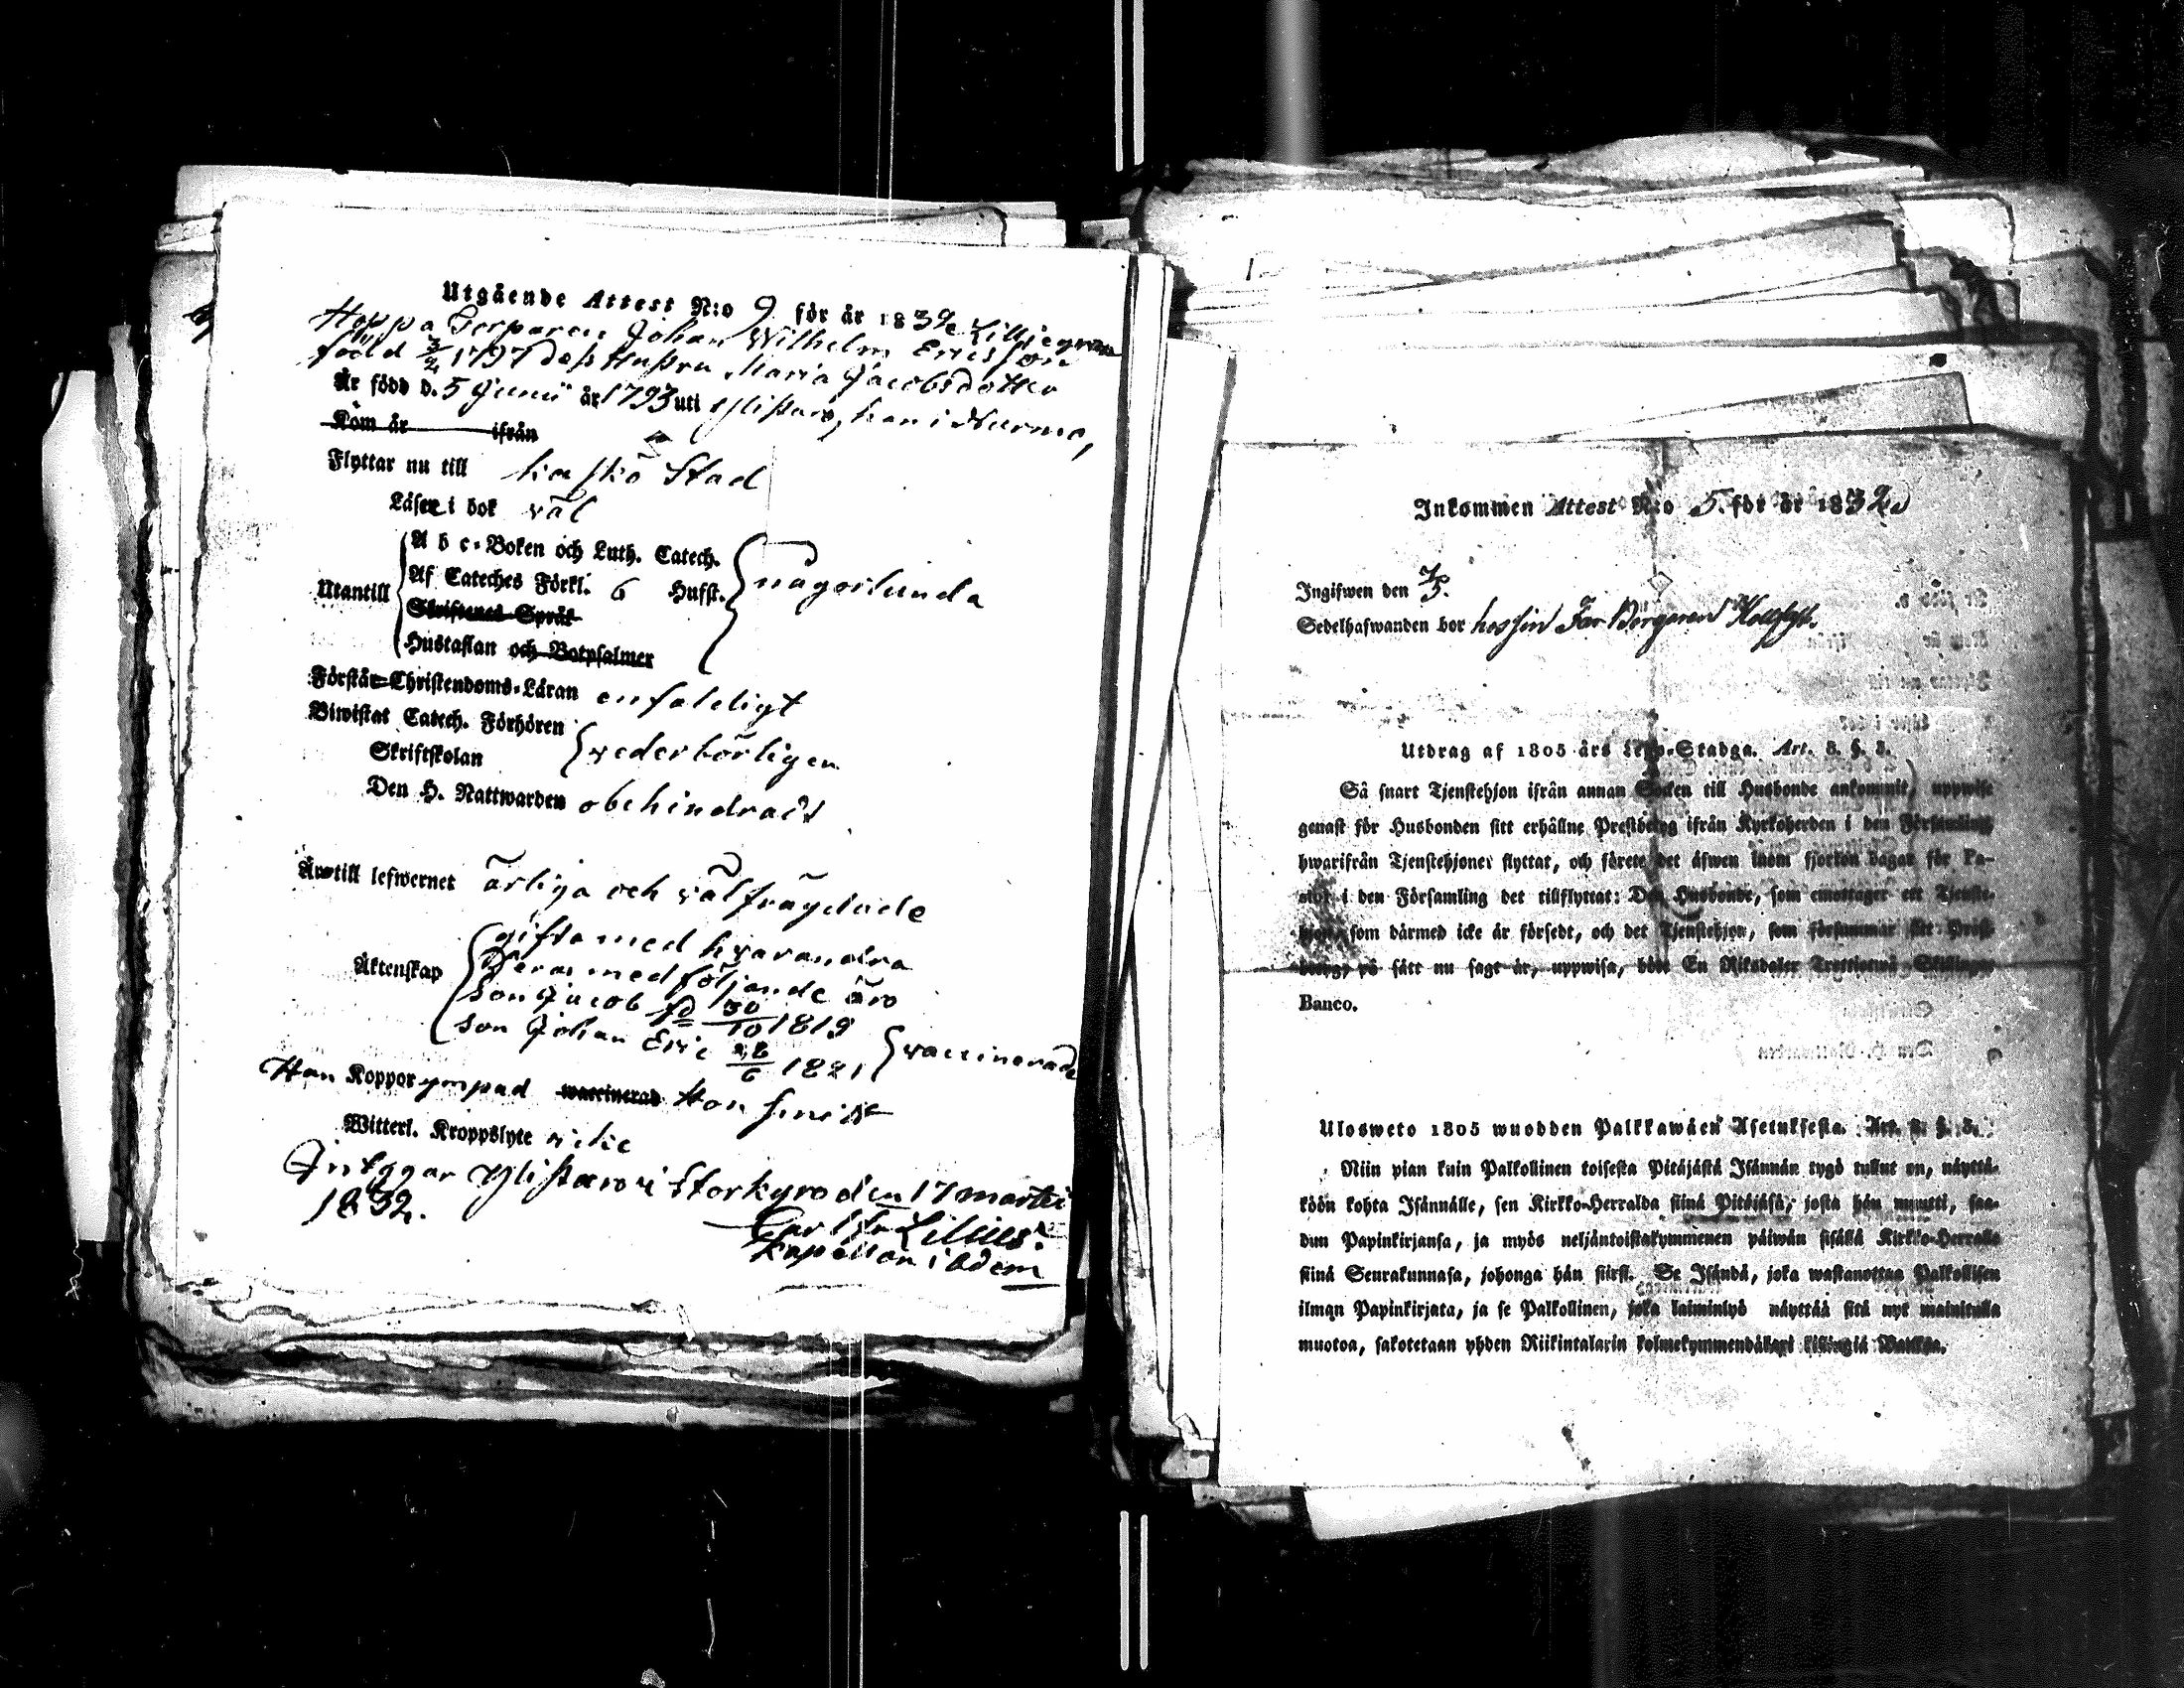 Utgående Attest N:o 9 för år 1832
Johan Wilhelm Ericsson
född 3/2 1797 dess Hustru Maria Jacobsdotter
Är född d. 5 Junii år 1793 uti Ylistaro, han i Nurmo,
Kom år ifrån
Flyttar nu till Kaskö Stad
Läser i bok väl
Utantill
A b c-Boken och Luth. Catech.
Af Cateches Förkl. 6 Hufst.
Skriftenes Språk
Hustaflan och Botpsalmer
någorlunda
Förstår Christendoms-Läran enfaldigt
Biwistat Catech. Förhören
Skriftskolan
vederbörligen
Den H. Nattwarden obehindrade
Äro till lefwernet ärliga och välfrägdade
Äktenskap
gifta med hvarandra
Deras medföljande äro
son Jacob fd 30/10 1819
son Johan Eric 28/6 1821
vaccinerade
Han Koppor ympad waccinerad Hon
Witterl. Kroppslyte icke
Intygar Ylistaro i Storkyro den 17 martii
1832.
Lilius.
Kapellan i bdem
Inkommen Attest N:o 5. för år 1832.
Ingifwen den 7/5.
Sedelhafwanden bor hos sin Far Borgaren
Utdrag af 1805 års Lego-Stadga. Art. 8. §. 3.
Så snart Tjenstehjon ifrån annan Socken till Husbonde ankommit, uppwise
genast för Husbonden sitt erhållne Prestbetyg ifrån Kyrkoherden i den Församling
hwarifrån Tjenstehjonet flyttat, och förete det äfwen inom fjorton dagar för Pa-
stor i den Församling det tillflyttat: Den Husbonde, som emottager ett Tjenste-
hjon, som därmed icke är försedt, och det Tjenstehjon, som försummar sitt Prest-
betyg, på sätt nu sagt är, uppwisa, böte En Riksdaler Trettiotwå Skillingar
Banco.
Ulosweto 1805 wuodden Palkkawäen Asetuksesta. Art. 8. §. 3.
Niin pian kuin Palkollinen toisesta Pitäjästä Isännän tygö tullut on, näyttä-
köön kohta Isännälle, sen Kirkko-Herralda siinä Pitäjäsä, josta hän muutti, saa-
dun Papinkirjansa, ja myös neljäntoistakymmenen päiwän sisällä Kirkko-Herralle
siinä Seurakunnasa, johonga hän siirsi. Se Isändä, joka wastanottaa Palkollisen
ilman Papinkirjata, ja se Palkollinen, joka laiminlyö näyttää sitä nyt mainitulla
muotoa, sakotetaan yhden Riikintalarin kolmekymmendäkaxi killingiä Bankosa.